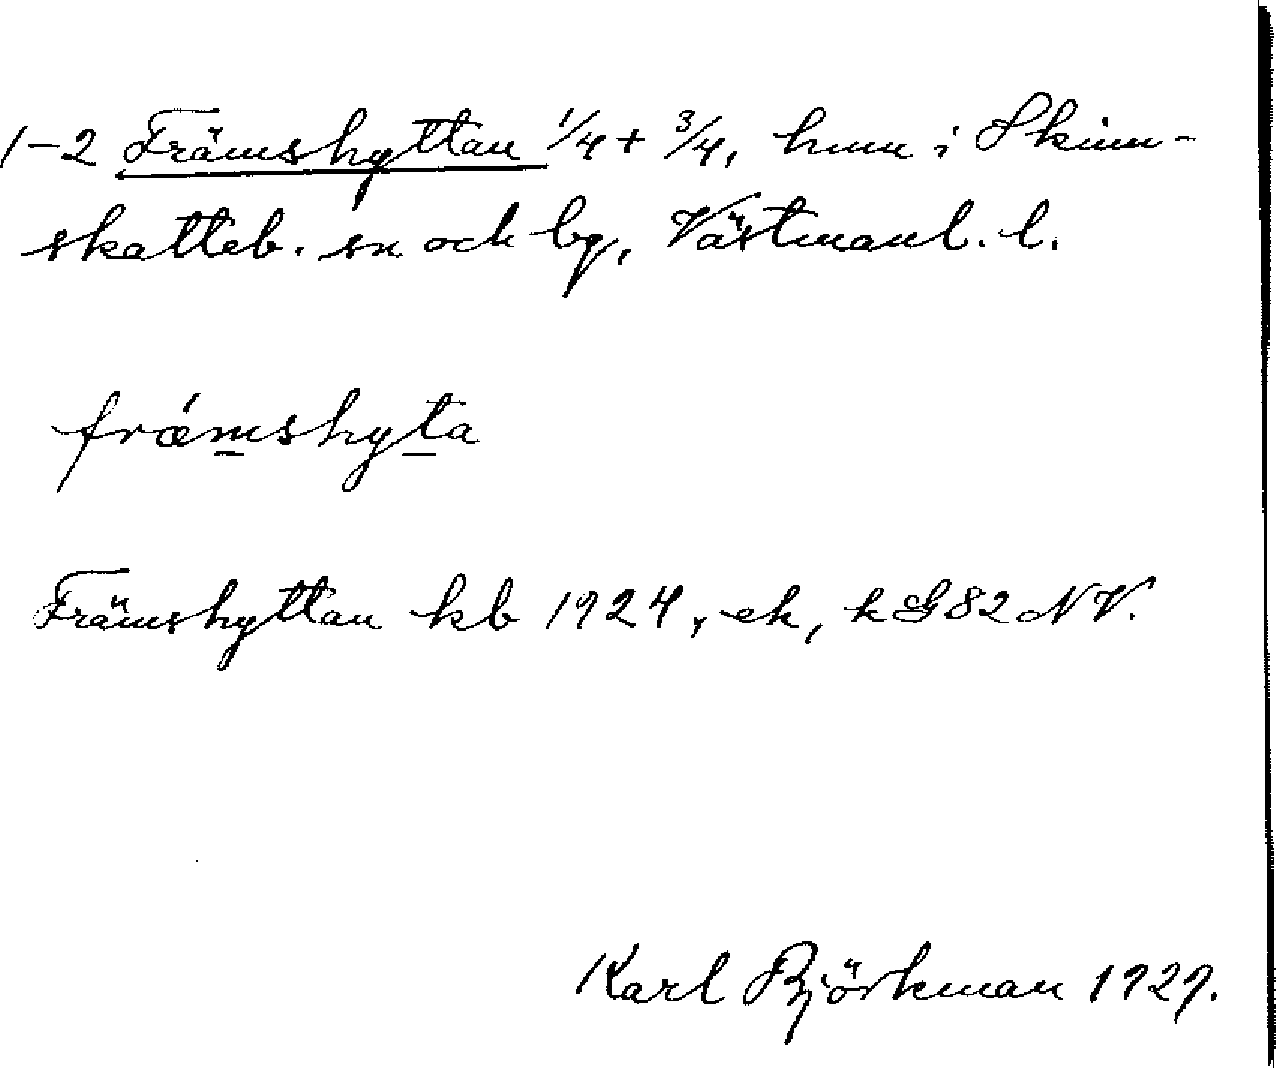 1-2 Främshyttan 1/4 + 3/4, hmn i Skinn-
skatteb. sn och bg, Västmanl. l.
frǽmshyta
Främshyttan kb 1924, ek, k G82 NV.
Karl Björkman 1929.